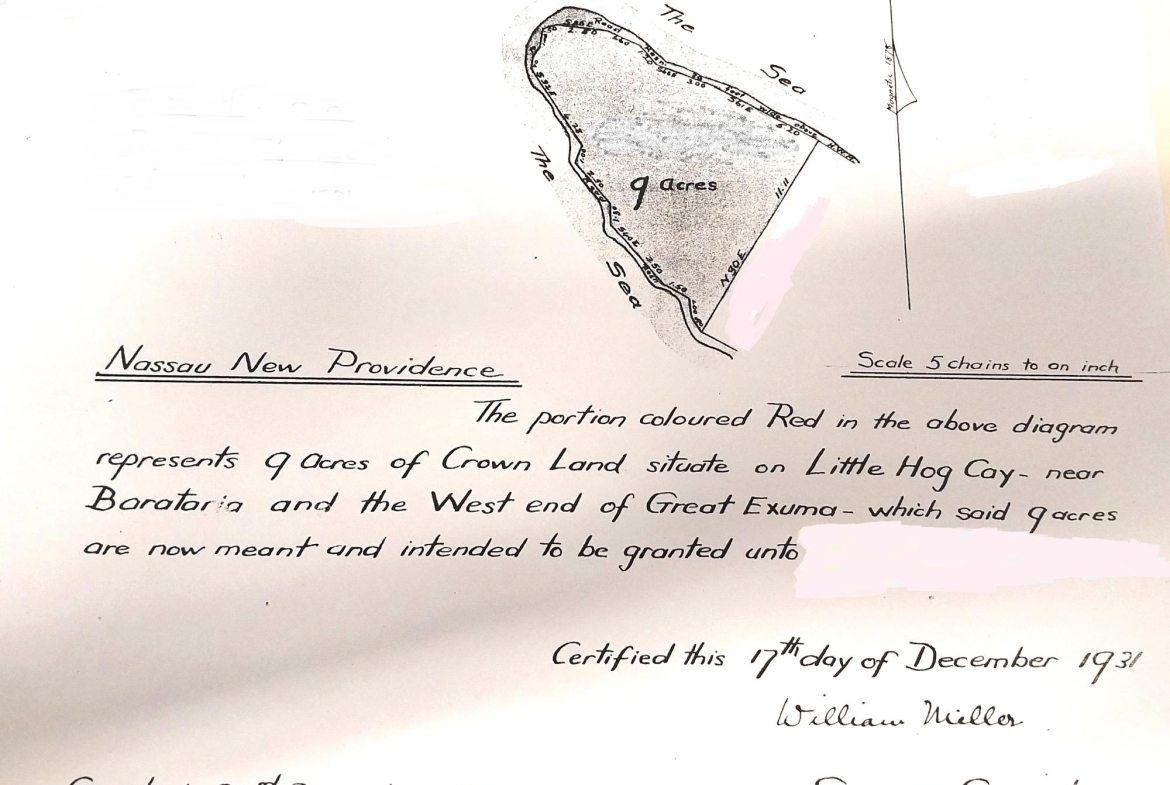 The
Sea
Road
Magnetic 1875
The
9 Acres
11.11
N 30 E
Sea
Nassau New Providence
Scale 5 chains to an inch
The portion coloured Red in the above diagram
represents 9 Acres of Crown Land situate on Little Hog Cay - near
Barataria and the West end of Great Exuma - which said 9 acres
are now meant and intended to be granted unto
Certified this 17th day of December 1931
William Miller